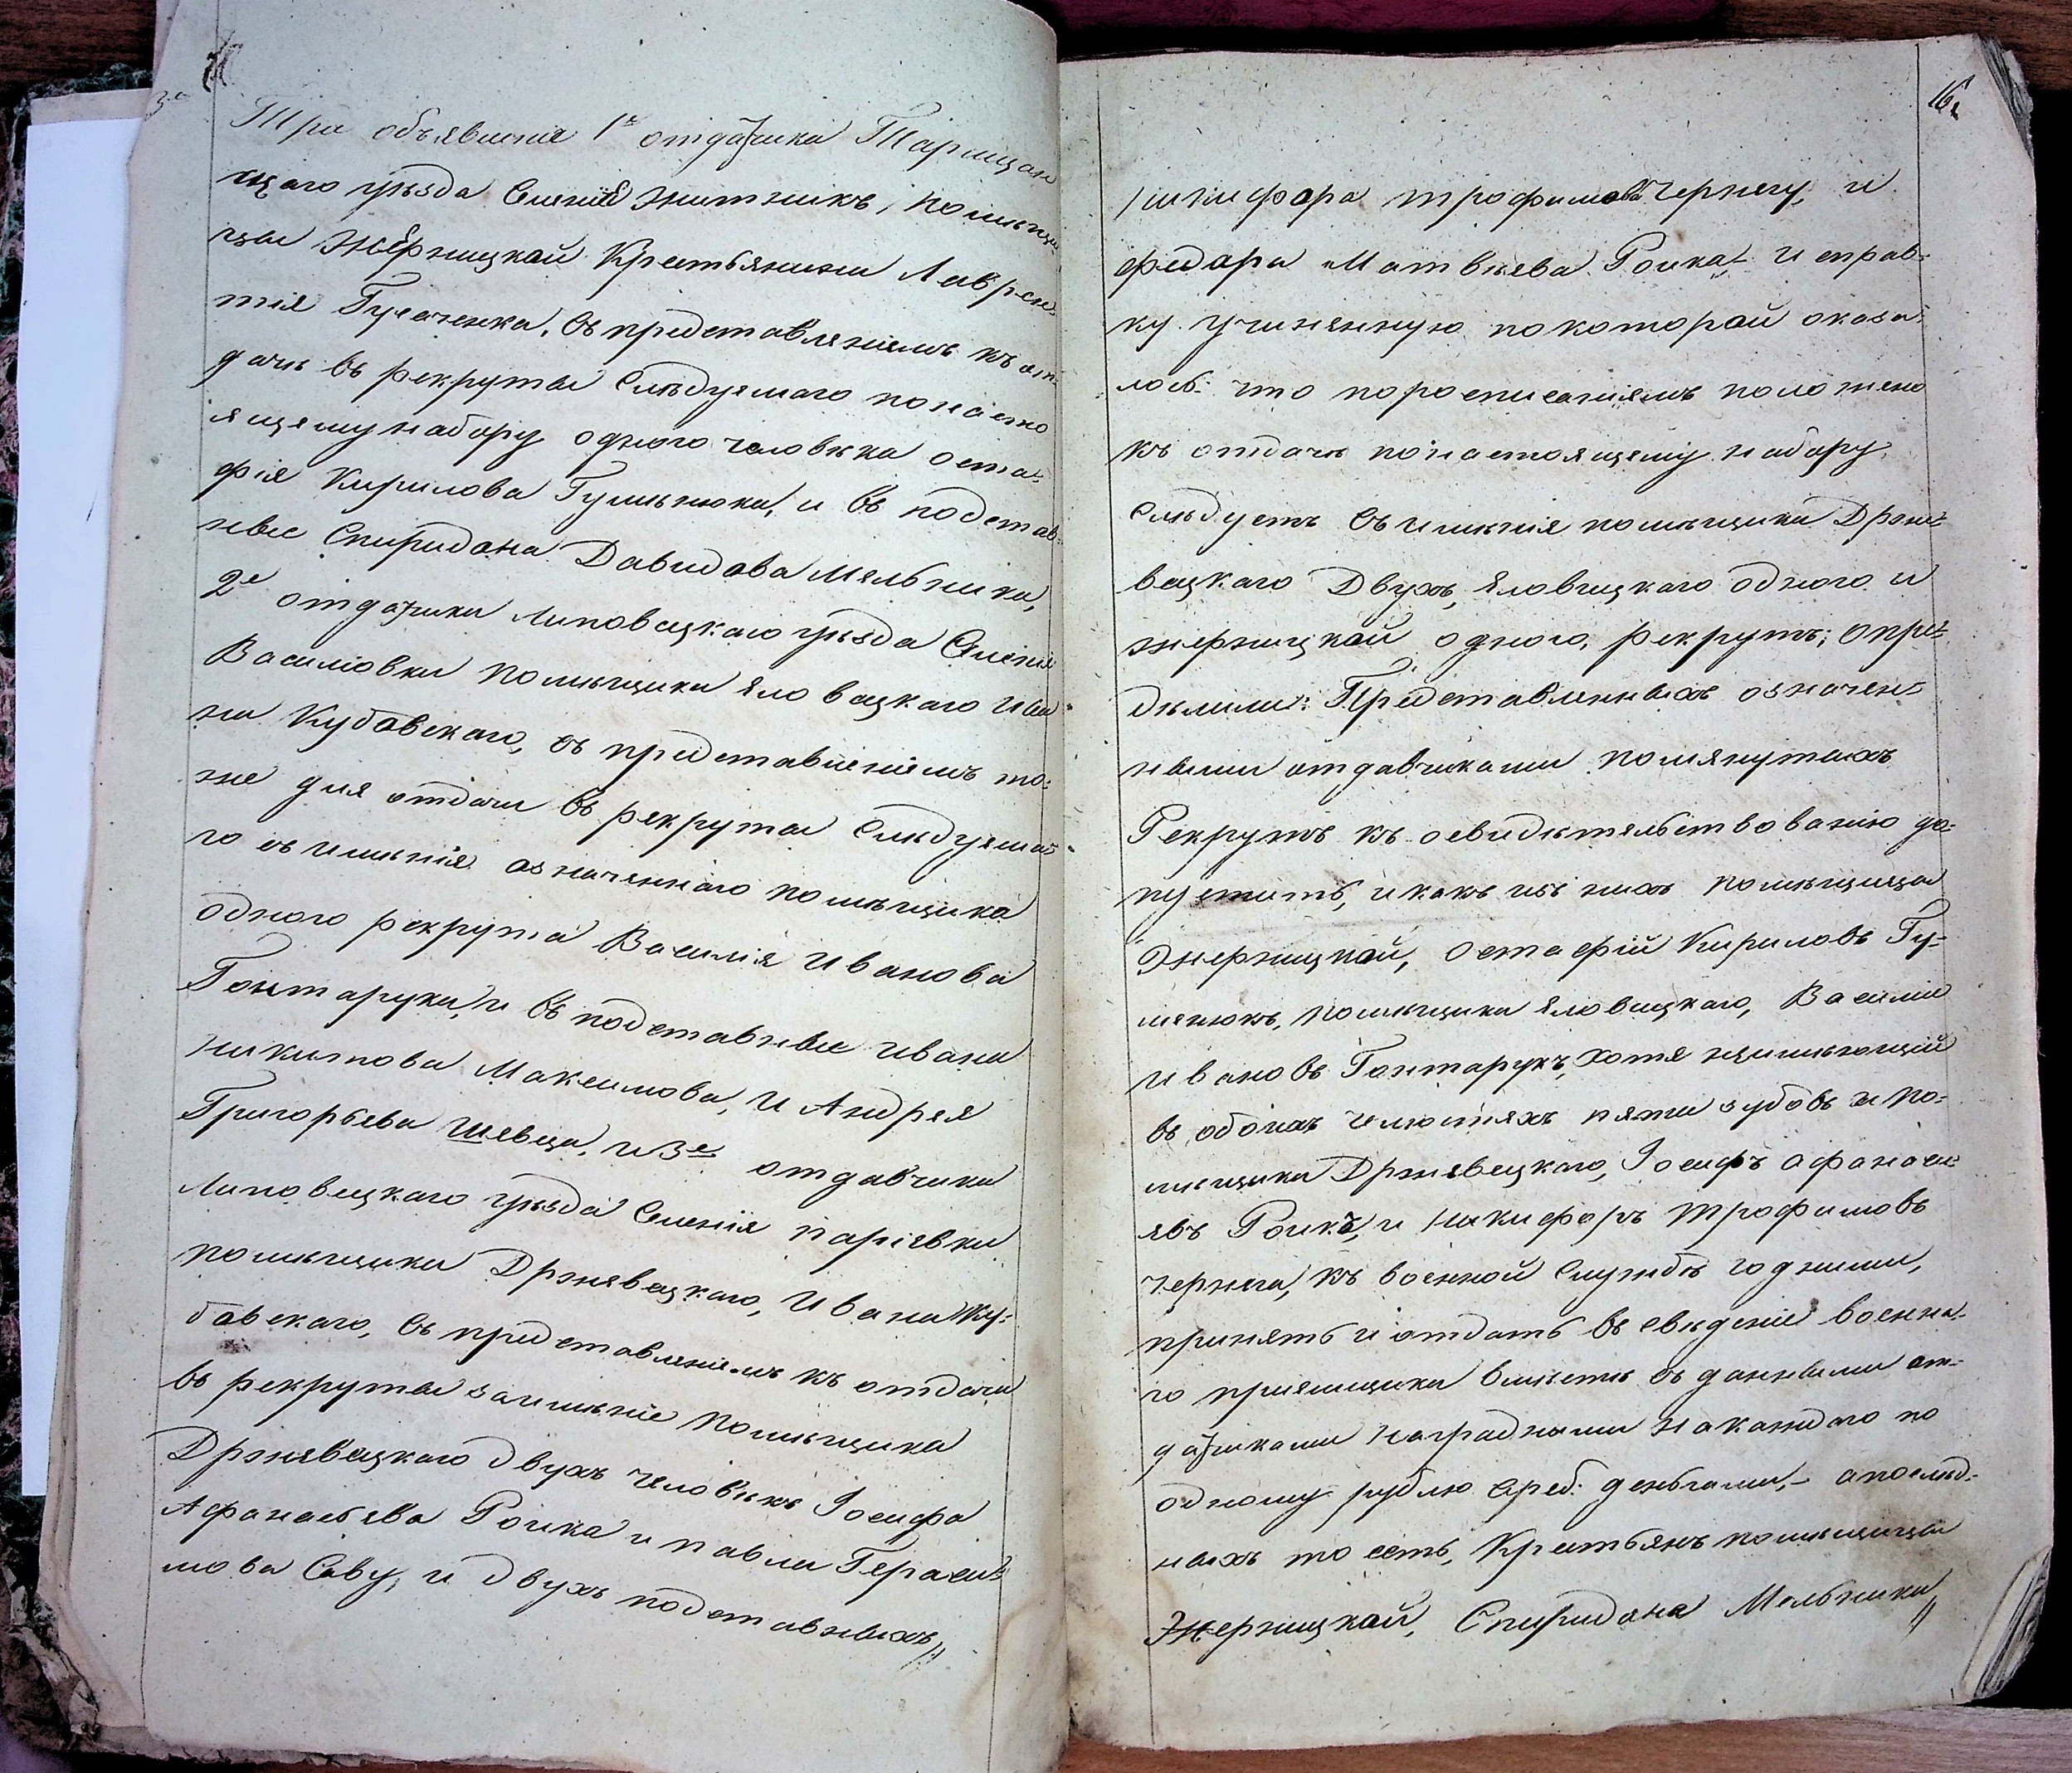 3е
Три объявленія 1е отдатчика Таращан
скаго уѣзда Селенія Житникъ, помѣщи
цы Жерницкой Крестьянина Лаврен
тія Гусаченка, съ представленіемъ къ от
дачѣ въ рекруты Слѣдуемаго по насто
ящему набору одного человѣка оста-
фія Кирилова Гуменюка, и въ подстав
ные Спиридона Давидова Мельника,
2е отдатчика Липовецкаго уѣзда Селенія
Василіовки помѣщика Яловицкаго Ива
на Кубавскаго, съ представленіемъ то-
же для отдачи въ рекруты Слѣдуема-
го съ имѣнія означеннаго помѣщика
одного рекрута Василія Иванова
Гонтарука, и въ подставные Ивана
Никитова Максимова, и Андрея
Григорьева Шевца, и 3е отдавчика
Липовецкаго уѣзда Селенія паріевки
помѣщика Држевецкаго, Ивана Ку-
бавскаго, Съ представленіемъ къ отдачи
въ рекруты за имѣніе помѣщика
Држевецкаго двухъ человѣкъ Іосифа
Афанасьева Роика и павла Гераси-
мова Саву, и двухъ подставныхъ,
16.
Никифора трофимова Чернегу, и
федора Матвѣева Роика, и справ-
ку учиненную по которой оказа-
лось: что по росписаніямъ положено
къ отдачѣ по настоящему набору
Слѣдуетъ съ имѣнія помѣщика Држе-
вецкаго Двухъ, Яловицкаго одного и
жерницкой одного, рекрутъ; опре-
дѣлили: Представленныхъ означен-
ными отдавчиками помянутыхъ
Рекрутъ къ освидѣтельствованію до-
пустить, и какъ изъ нихъ помѣщицы
Жерницкой, остафій Кириловъ Гу-
менюкъ, помѣщика Яловицкаго, Василій
Ивановъ Гонтарукъ, хотя неимѣющій
въ обоихъ челюстяхъ пяти зубовъ и по-
мѣщика Држевецкаго, Іосифъ афанась-
евъ Роикъ, и Никифоръ трофимовъ
чернега, къ военной Службѣ годными,
принять и отдать въ свѣденіе военна-
го пріемщика вмѣстѣ съ данными от-
датчиками наградными на каждаго по
одному рублю сереб: деньгами,- а послѣд-
нихъ то есть, Крестьянъ помѣщицы
Жерницкой, Спиридона Мельника,